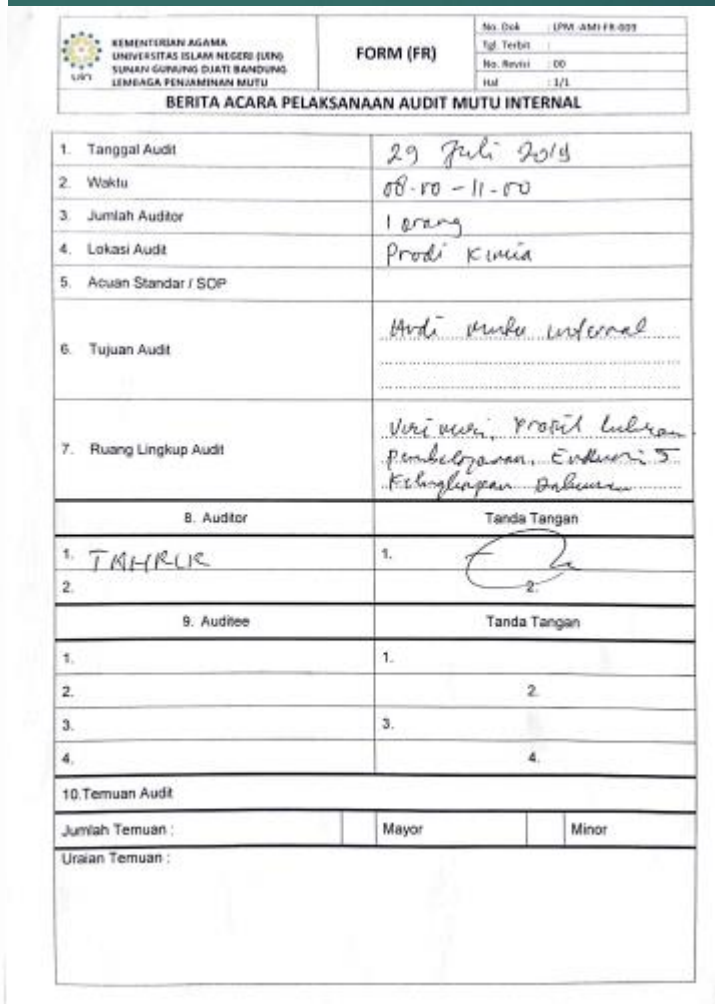 KEMENTERIAN AGAMA
UNIVERSITAS ISLAM NEGERI (UIN)
SUNAN GUNUNG DJATI BANDUNG
LEMBAGA PENJAMINAN MUTU
uin
FORM (FR)
No. Dok : LPM-AMI-FR-009
Tgl. Terbit :
No. Revisi : 00
Hal : 1/1
BERITA ACARA PELAKSANAAN AUDIT MUTU INTERNAL
1. Tanggal Audit 29 Juli 2019
2. Waktu 08.00 - 11.00
3. Jumlah Auditor 1 orang
4. Lokasi Audit Prodi Kimia
5. Acuan Standar / SOP
6. Tujuan Audit
mutu internal
7. Ruang Lingkup Audit
Profil lulusan
pembelajaran,
Kelengkapan
8. Auditor Tanda Tangan
1. TAHRIR 1.
2. 2.
9. Auditee Tanda Tangan
1. 1.
2. 2.
3. 3.
4. 4.
10.Temuan Audit
Jumlah Temuan : Mayor Minor
Uraian Temuan :